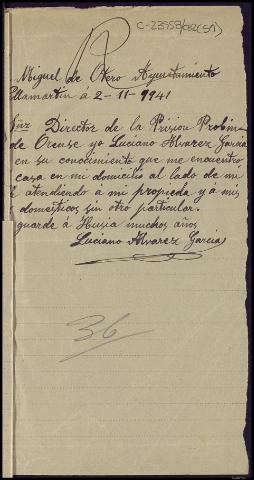 C-23553/082(51)
Miguel de Otero Ayuntamiento
Villamartin á 2-11-1941
Director de la Prision Probin
de Orense yo Luciano Alvarez Garcia
en su conocimiento que me encuentro
casa en mi domicilio al lado de mi
atendiendo á mi propieda y á mis
domesticos sin otro particular.
guarde á Husia muchos años
Luciano Alvarez Garcia
36